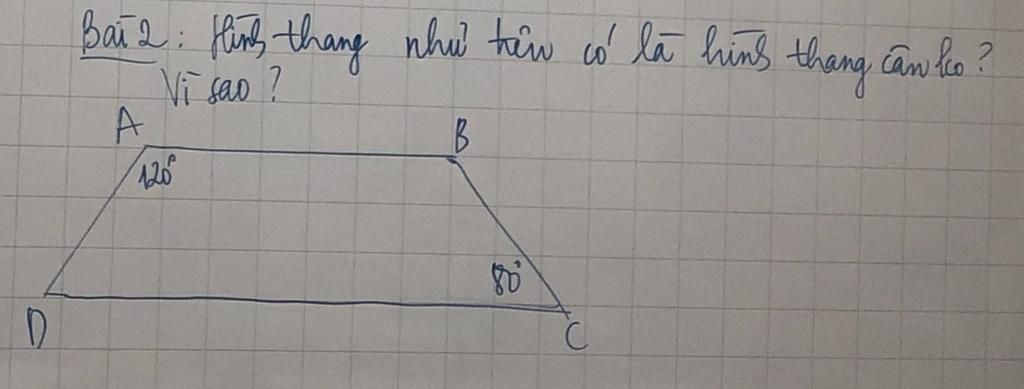 Bài 2: Hình thang như trên có là hình thang cân ko?
Vì sao?
A
B
120°
80°
D
C